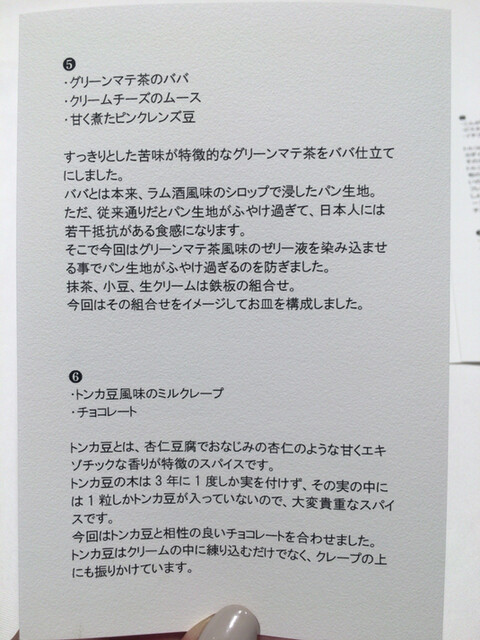 ❺
・グリーンマテ茶のババ
・クリームチーズのムース
・甘く煮たピンクレンズ豆
すっきりとした苦味が特徴的なグリーンマテ茶をババ仕立て
にしました。
ババとは本来、ラム酒風味のシロップで浸したパン生地。
ただ、従来通りだとパン生地がふやけ過ぎて、日本人には
若干抵抗がある食感になります。
そこで今回はグリーンマテ茶風味のゼリー液を染み込ませ
る事でパン生地がふやけ過ぎるのを防ぎました。
抹茶、小豆、生クリームは鉄板の組合せ。
今回はその組合せをイメージしてお皿を構成しました。
❻
・トンカ豆風味のミルクレープ
・チョコレート
トンカ豆とは、杏仁豆腐でおなじみの杏仁のような甘くエキ
ゾチックな香りが特徴のスパイスです。
トンカ豆の木は 3 年に 1 度しか実を付けず、その実の中に
は 1 粒しかトンカ豆が入っていないので、大変貴重なスパイ
スです。
今回はトンカ豆と相性の良いチョコレートを合わせました。
トンカ豆はクリームの中に練り込むだけでなく、クレープの上
にも振りかけています。